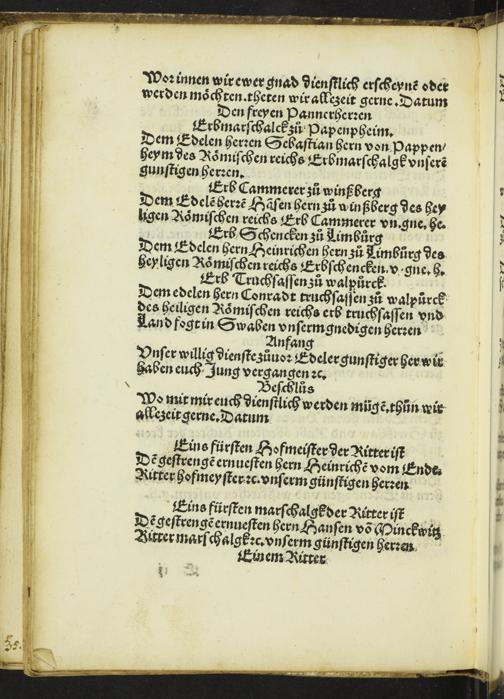 Wor innen wir ewer gnad dienstlich erscheynē oder
werden möchten.theten wir allezeit gerne.Datum
Den freyen Pannerherren
Erbmarschalck zů Papenpheim.
Dem Edelen herren Sebastian hern von Pappen/
heym des Römischen reichs Erbmarschalgk vnserē
gunstigen herren.
Erb Cammerer zů winßberg
Dem Edelē herrē Hāsen hern zů winßberg des hey
ligen Römischen reichs Erb Cammerer vn.gne.he.
Erb Schencken zů Limbürg
Dem Edelen hern Heinrichen hern zů Limbürg des
heyligen Römischen reichs Erbschencken.v.gne.h.
Erb Truchsassen zů walpürck.
Dem edelen hern Conradt truchsassen zů walpürck
des heiligen Römischen reichs erb truchsassen vnd
Land fogt in Swaben vnserm gnedigen herren
Anfang
Vnser willig dienste zůuor Edeler gunstiger her wir
haben euch Jung vergangen ꝛc.
Beschlüs
Wo mit mir euch dienstlich werden mügē.thün wir
allezeit gerne.Datum
Eins fürsten Hofmeister der Ritter ist
Dē gestrengē ernuesten hern Heinrichē vom Ende.
Ritter hofmeyster ꝛc.vnserm günstigen herren
Eins fürsten marschalgk der Ritter ist
Dē gestrengē ernuesten hern Hansen vō Minckwitz
Ritter marschalgk ꝛc.vnserm günstigen herren
Einem Ritter